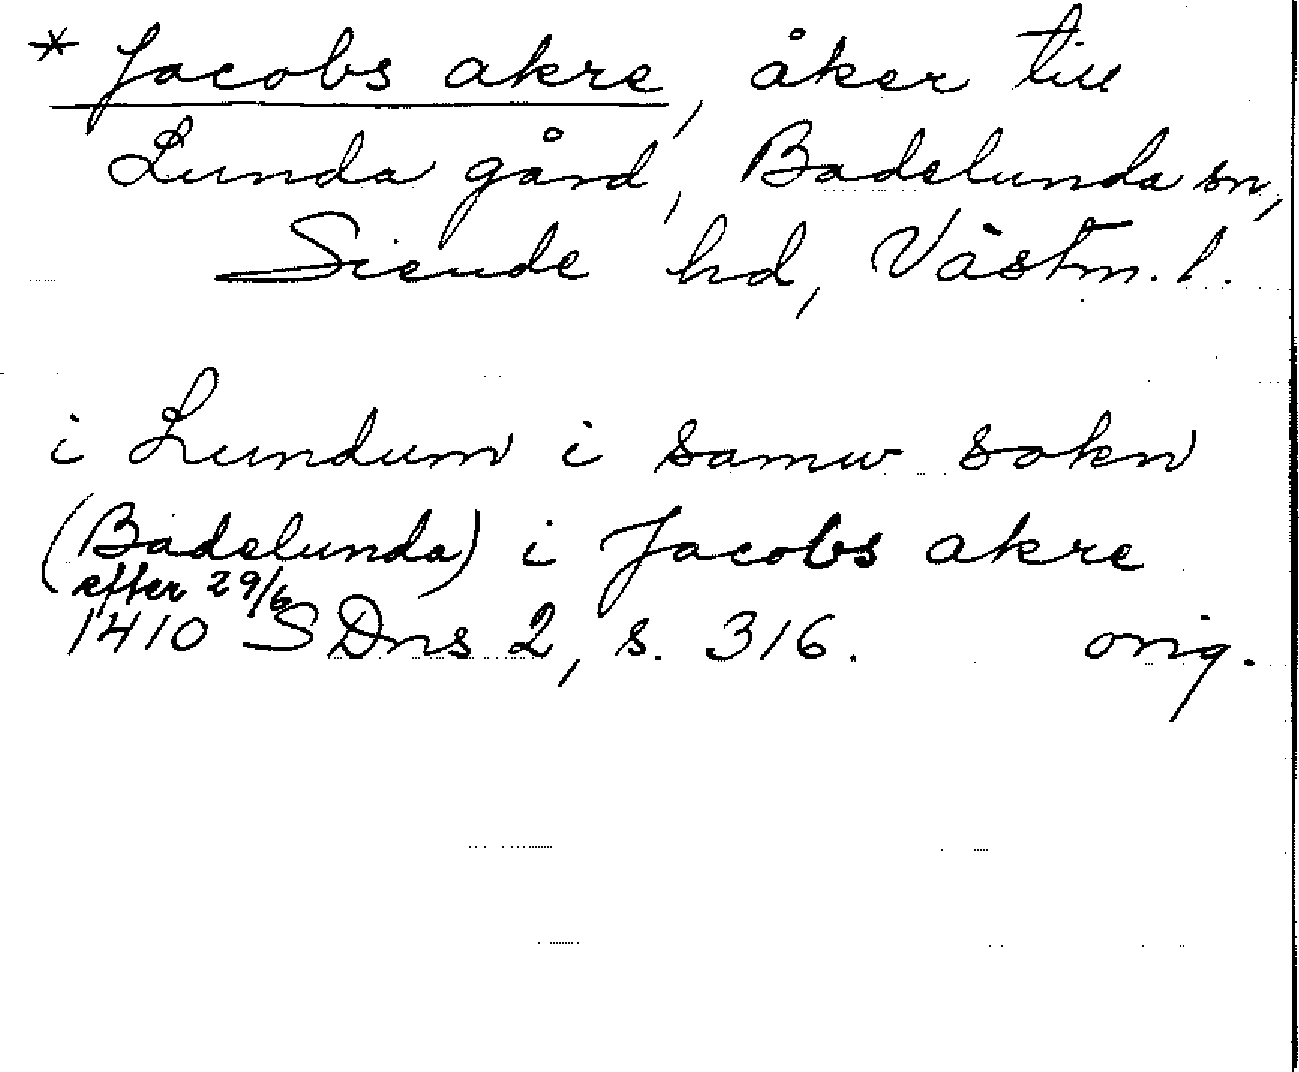 * Jacobs akre, åker till
Lunda gård, Badelunda sn,
Siende hd, Västm. l.
i Lundum i samw sokn
(Badelunda) i Jacobs akre
efter 29/6
1410 SDns 2, s. 316. orig.